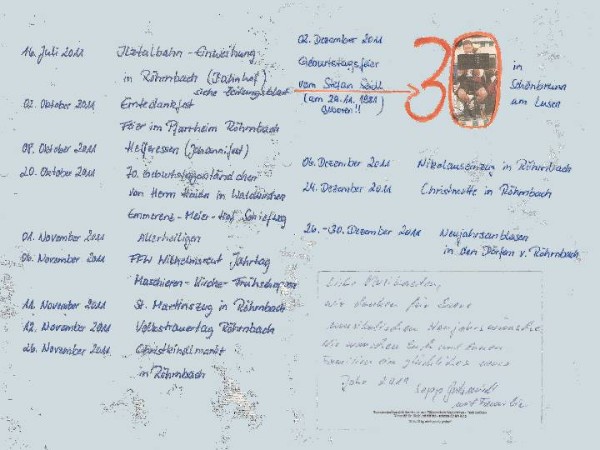 16. Juli 2011 Ilztalbahn-Einweihung
in Röhrnbach (Bahnhof)
siehe Zeitungsblatt
02. Oktober 2011 Erntedankfest
Feier im Pfarrheim Röhrnbach
08. Oktober 2011 Helferessen (Johannifest)
20. Oktober 2011 70. Geburtstagsständchen
von Herrn in Waldkirchen
Emmerenz-Meier-Hof Schiefweg
01. November 2011 Allerheiligen
06. November 2011 FFW Jahrtag
Maschieren-Kirche-Frühschoppen
11. November 2011 St. Martinszug in Röhrnbach
12. November 2011 Volkstrauertag Röhrnbach
26. November 2011 Christkindlmarkt
in Röhrnbach
02. Dezember 2011
Geburtstagsfeier
vom Stefan
(am 29.11.1981
geboren!!)
30
in
Schönbrunn
am Lusen
06. Dezember 2011 Nikolauseinzug in Röhrnbach
24. Dezember 2011 Christmette in Röhrnbach
26.-30. Dezember 2011 Neujahrsanblasen
in den Dörfern v. Röhrnbach
Liebe Musikanten,
wir danken für Eure
musikalischen Neujahrswünsche
Wir wünschen Euch und Euren
Familien ein glückliches neues
Jahr 2011